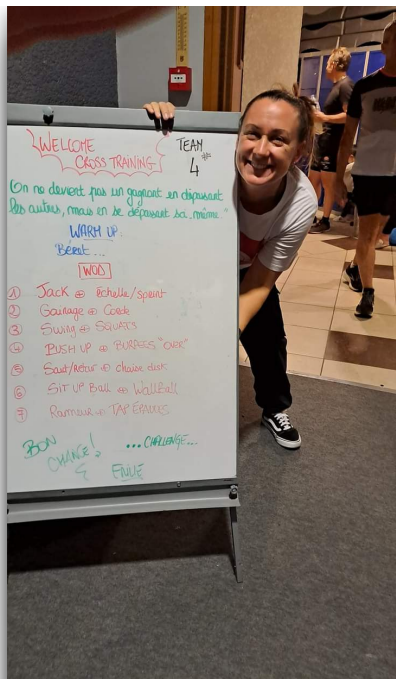 WELCOME
CROSS TRAINING
TEAM
4
On ne devient pas un gagnant en dépassant
les autres, mais en se dépassant soi même"
WARM UP
Béret...
WOD
1 Jack + échelle/sprint
2 Gainage + Corde
3 Swing + SQUATS
4 PUSH UP + BURPEES "OVER"
5 Saut/retour + chaise disk
6 SIT UP Ball + WallBall
7 Rameur + TAP ÉPAULES
BON
CHANCE!
...CHALLENGE...
&
ENVIE